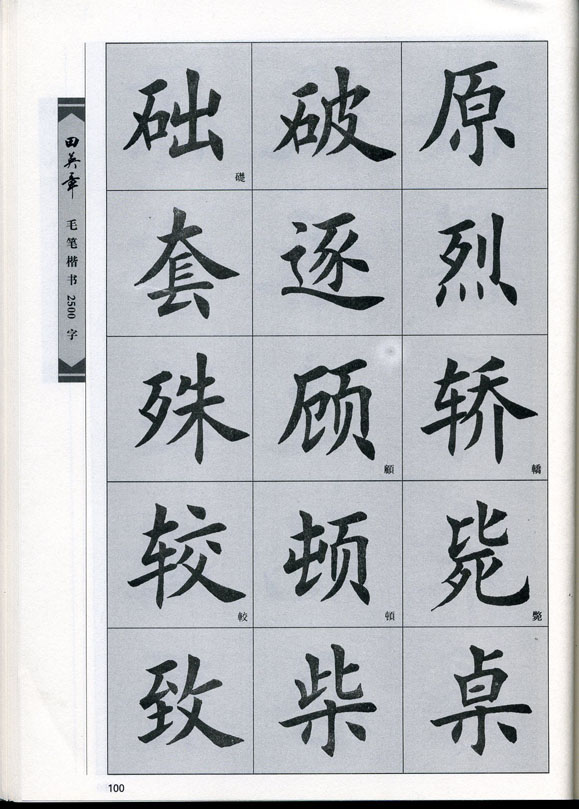 田英章 毛笔楷书 2500 字
础 礎 破 原
套 逐 烈
殊 顾 顧 轿 轎
较 較 顿 頓 毙 斃
致 柴 桌
100